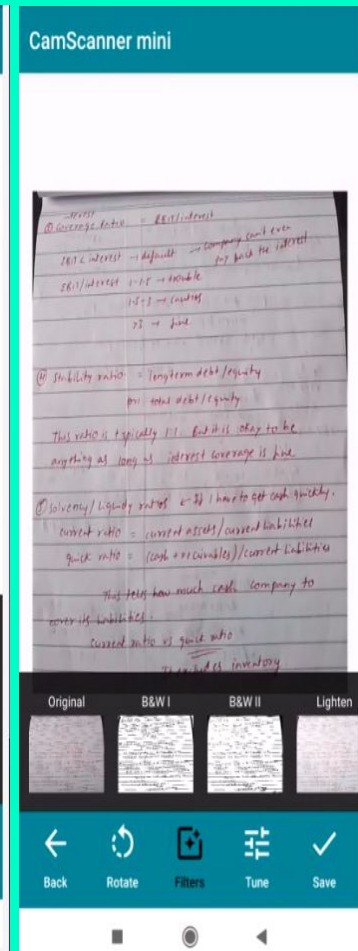 CamScanner mini
Interest
③ Coverage Ratio = EBIT/interest
EBIT < interest → default → company can't even
pay back the interest
EBIT/interest 1-1.5 → trouble
1.5-3 → cautios
>3 → fine
④ Stability ratio = longterm debt/equity
or total debt/equity
This ratio is typically 1:1. But it is okay to be
anything as long as interest coverage is fine
⑤ Solvency/Liquidy ratios ← If I have to get cash quickly.
current ratio = current assets/current liabilities
quick ratio = (cash + receivables)/current liabilities
This tells how much cash company to
cover its liabilities.
Current ratio vs quick ratio
excludes inventory
Original B&W I B&W II Lighten
Back Rotate Filters Tune Save